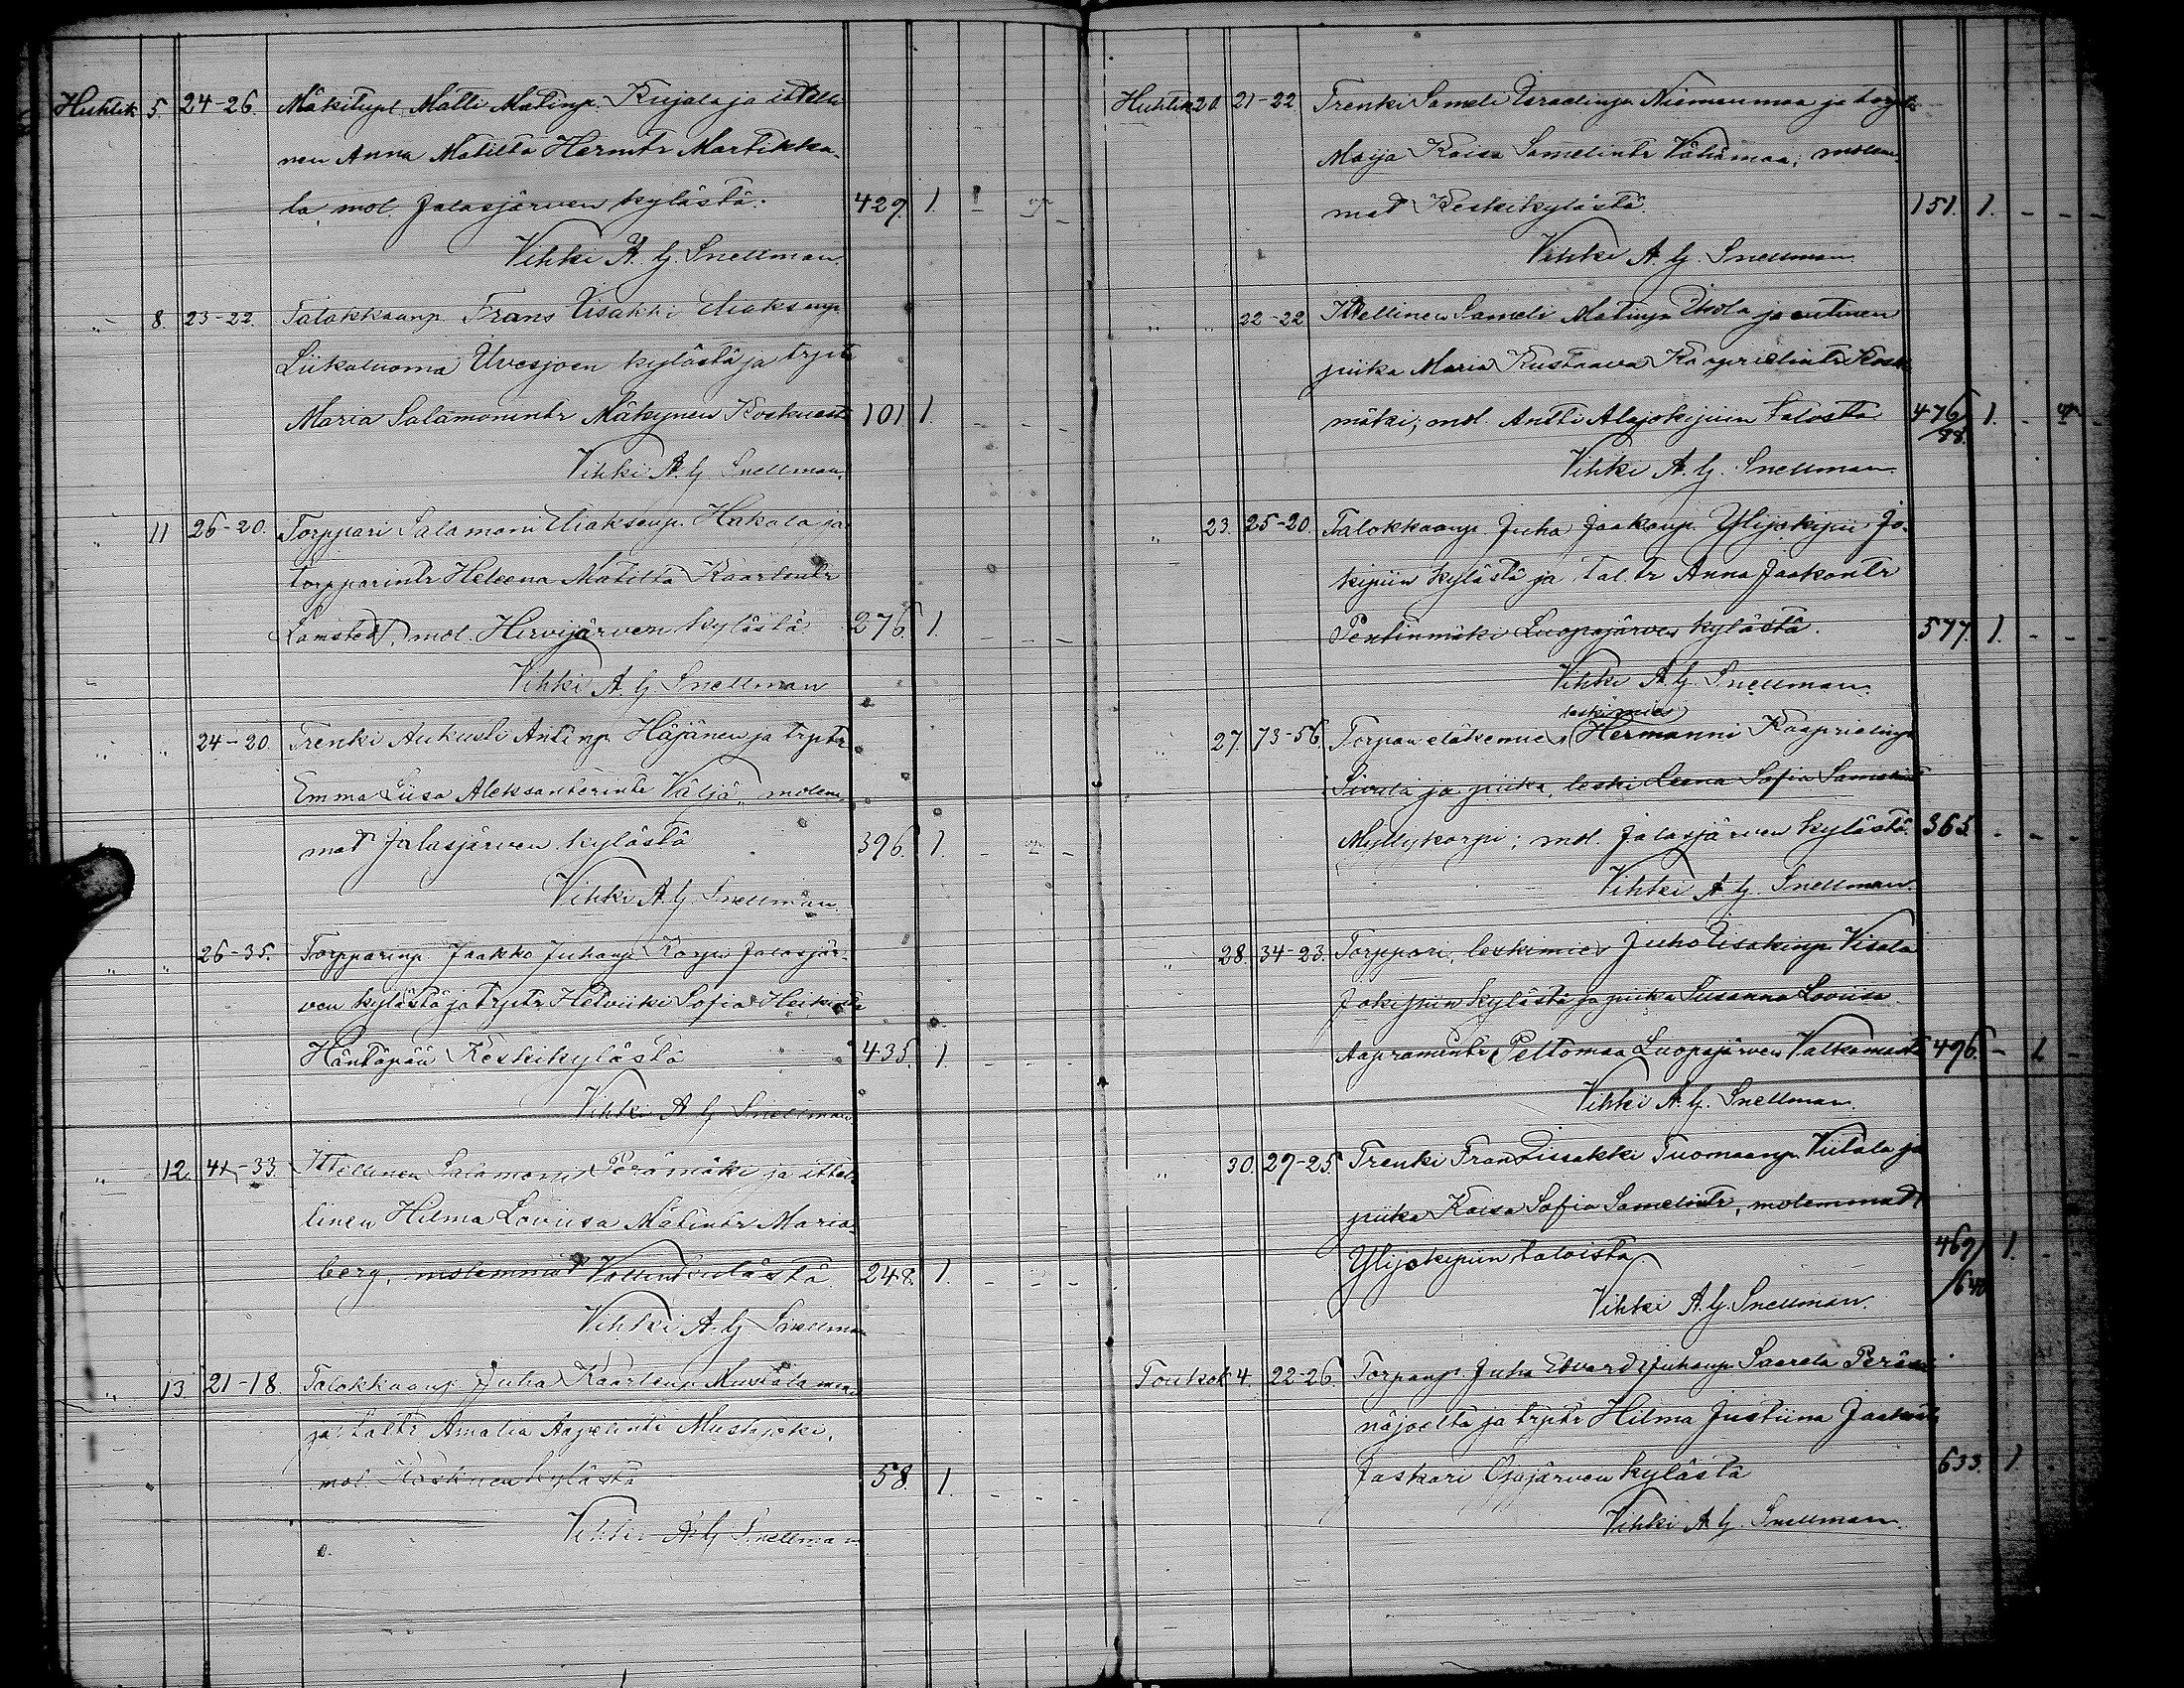 Huhtik. 5. 24-26. Mäkitupl. Matti Matinp. Kujala ja ittelli-
nen Anna Matilta Hermtr Martikka-
la, mol. Jalasjärven kylästä. 429. 1.
Vihki A. G. Snellman.
" 8. 23-22. Talokkaanp. Frans Iisakki Eliaksenp.
Liikaluoma Ilvesjoen kylästä ja trptr
Maria Salamonintr Mäkynen Koskuesta 101 1. - - -
Vihki A. G. Snellman.
" 11 26-20. Torppari Salamoni Eliaksenp. Hakala ja
torpparintr Heleena Matilta Kaarlentr
mol. Hirvijärven kylästä 276. 1. - - -
Vihki A. G. Snellman
" " 24-20. Trenki Aukusti Antinp. Häjänen ja trptr
Emma Liisa Aleksanterintr Väljä, molem-
mat Jalasjärven kylästä 396. 1. - -
Vihki A. G. Snellman.
" " 26-35. Torpparinp. Jaakko Juhanp. Korpi Jalasjär-
ven kylästä ja trptr Hetviiki Sofia
Häntäpää Keskikylästä 435. 1. - - -
Vihki A. G. Snellman
" 12. 41-33. Ittellinen Salamonp. Perämäki ja ittel-
linen Hilma Loviisa Matintr Maria-
berg, molemmat 248. 1. - - -
Vihki A. G. Snellman
" 13 21-18. Talokkaanp. Juha Kaarlenp.
ja taltr. Amalia Aapelintr Mustajoki,
mol. Koskuen kylästä 58. 1. - - -
Vihki A. G. Snellman
Huhtik. 20. 21-22 Trenki Sameli Israelinp. Niemenmaa ja torptr
Maija Kaisa Samelintr Vähämaa; molem-
mat Keskikylästä. 151. 1. - - -
Vihki A. G. Snellman.
" " 22-22 Ittellinen Sameli Matinp. ja entinen
piika Maria Kustaava Kaaprielintr Koski-
mäki; mol. Antti Alajokipiin talosta 476/88. 1. -
Vihki A. G. Snellman.
" 23. 25-20. Talokkaanp. Juha Jaakonp. Ylijokipii Jo-
kipiin kylästä ja tal.tr Anna Jaakontr
Pentinmäki Luopajärven kylästä. 577. 1. - - -
Vihki A. G. Snellman.
leskimies
" 27. 73-56 Torpan eläkemies Hermanni Kaaprielinp.
Sivula ja piika, leski Leena Sofia Samelintr
Myllykorpi; mol. Jalasjärven kylästä. 365. - - -
Vihki A. G. Snellman.
" 28. 34-23. Torppari, leskimies Juho Iisakinp. Visala
Jokipiin kylästä ja piika Susanna Loviisa
Aapramintr Peltomaa Luopajärven Valkamasta 496. - 1. -
Vihki A. G. Snellman.
" 30. 29-25 Trenki Frans Iisakki Tuomaanp. Viitala ja
piika Kaisa Sofia Samelintr, molemmat
Ylijokipiin taloista. 469/640 1. - -
Vihki A. G. Snellman.
Toukok. 4. 22-26. Torpanp. Juha Edvard Juhanp. Saarela Perä-
näjoelta ja trptr Hilma Justiina Jaakontr
Jaskari Opajärven kylästä 633. 1 -
Vihki A. G. Snellman.